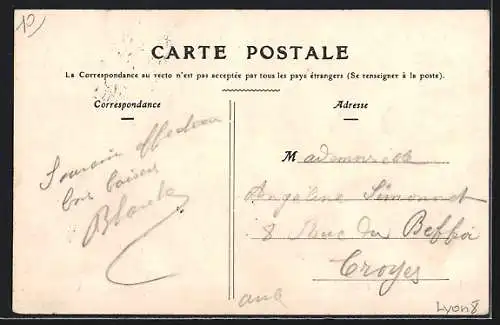 10
CARTE POSTALE
La Correspondance au recto n'est pas acceptée par tous les pays étrangers (Se renseigner à la poste).
Correspondance
Adresse
Souvenir affectueux
bons baisers
Blanche
Mademoiselle
Angéline Simonnot
8 Rue du Beffroi
Troyes
aub
Lyon 8